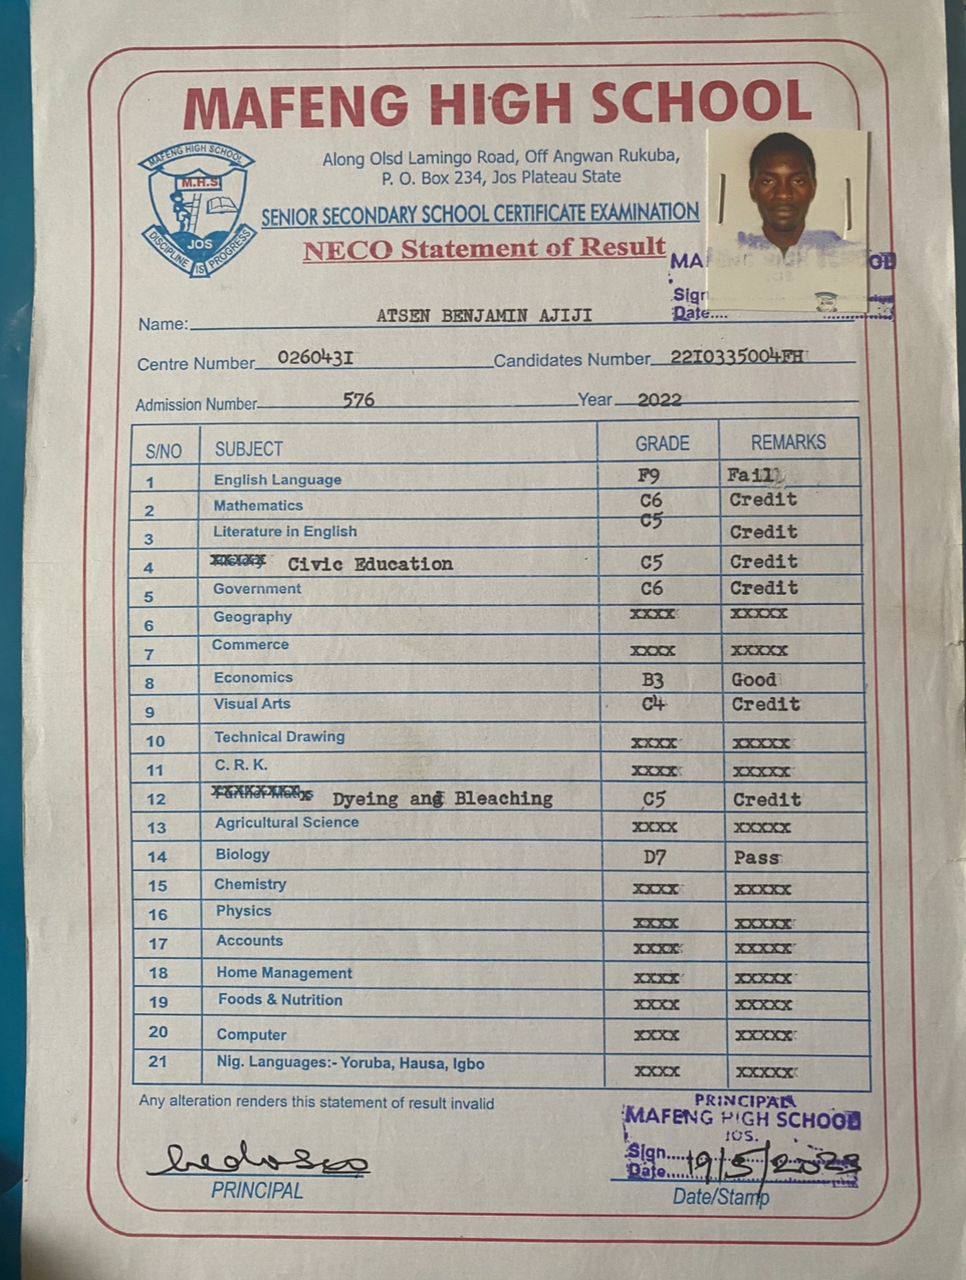 MAFENG HIGH SCHOOL
Along Olsd Lamingo Road, Off Angwan Rukuba,
P. O. Box 234, Jos Plateau State
MAFENG HIGH SCHOOL
M.H.S
JOS
DISCIPLINE IS PROGRESS
SENIOR SECONDARY SCHOOL CERTIFICATE EXAMINATION
NECO Statement of Result
Sign
Date....
Name: ATSEN BENJAMIN AJIJI
Centre Number 026043I Candidates Number 22I0335004FH
Admission Number 576 Year 2022
S/NO SUBJECT GRADE REMARKS
1 English Language F9 Fail
2 Mathematics C6 Credit
3 Literature in English C5 Credit
4 Civic Education C5 Credit
5 Government C6 Credit
6 Geography XXXX XXXXX
7 Commerce XXXX XXXXX
8 Economics B3 Good
9 Visual Arts C4 Credit
10 Technical Drawing XXXX XXXXX
11 C. R. K. XXXX XXXXX
12 Dyeing and Bleaching C5 Credit
13 Agricultural Science XXXX XXXXX
14 Biology D7 Pass
15 Chemistry XXXX XXXXX
16 Physics XXXX XXXXX
17 Accounts XXXX XXXXX
18 Home Management XXXX XXXXX
19 Foods & Nutrition XXXX XXXXX
20 Computer XXXX XXXXX
21 Nig. Languages:- Yoruba, Hausa, Igbo XXXX XXXXX
Any alteration renders this statement of result invalid
PRINCIPAL
MAFENG HIGH SCHOOL
JOS.
Sign.....
Date..... 19/5/2023
PRINCIPAL
Date/Stamp